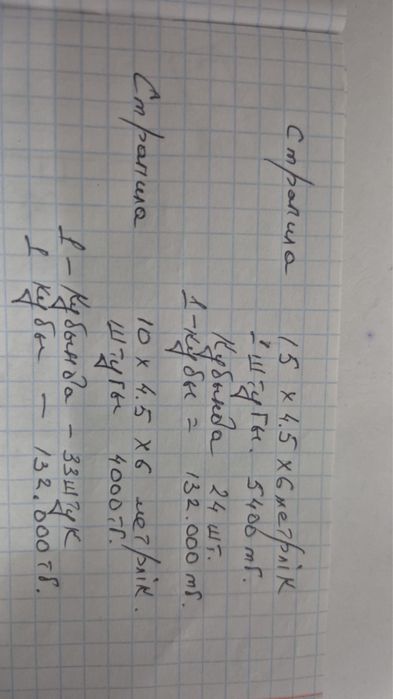 Страпила 15 х 4.5 х 6 метрлік
1 штугы. 5400 тг.
Кубында 24 шт.
1 - кубы = 132.000 тг.
Страпила 10 х 4.5 х 6 метрлік.
штугы 4000 тг.
1 - Кубында - 33 штук
1 кубы - 132.000 тг.